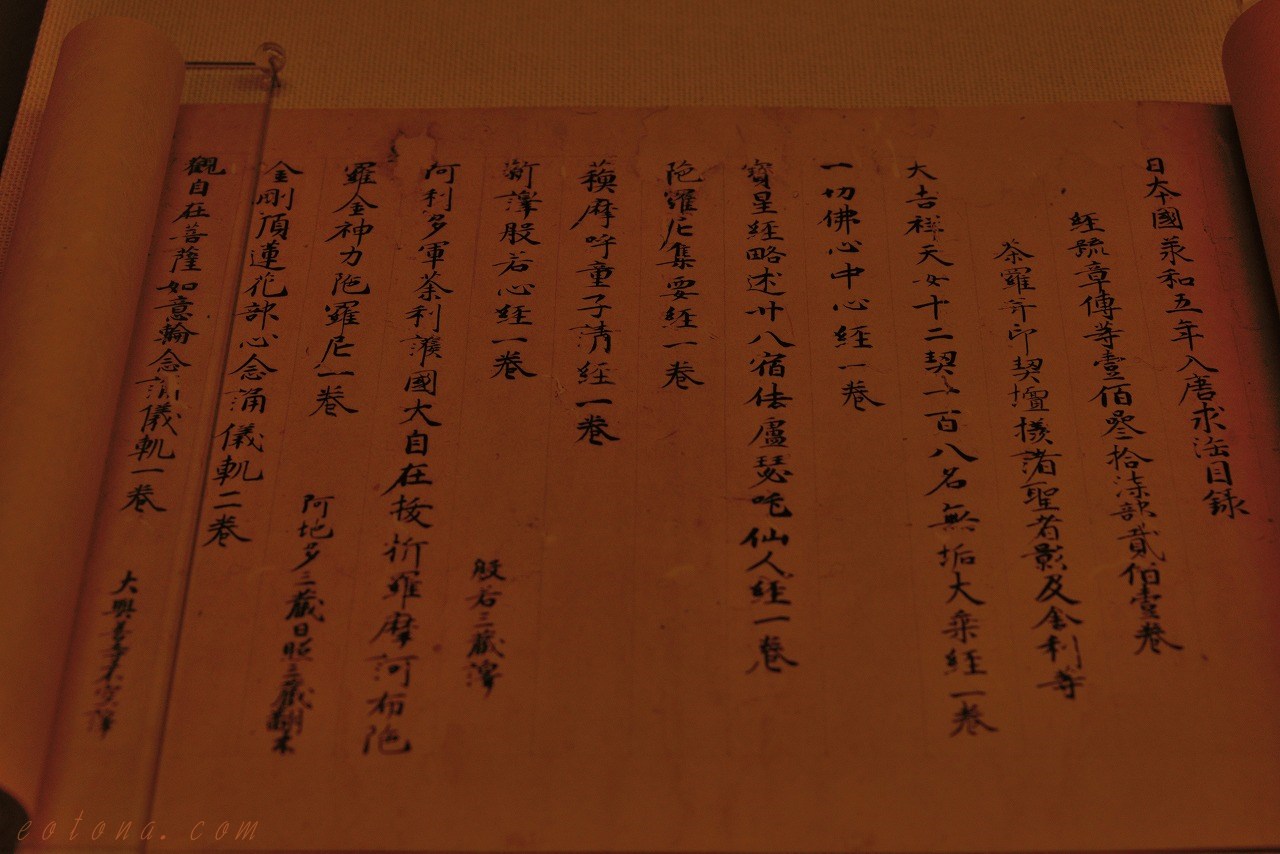 日本國承和五年入唐求法目錄
經疏章傳等壹佰叄拾柒部貳佰壹卷
荼羅并印契壇樣諸聖者影及舍利等
大吉祥天女十二契一百八名無垢大乘經一卷
一切佛心中心經一卷
寶星經略述廿八宿佉盧瑟吒仙人經一卷
陁羅尼集要經一卷
蘓摩呼童子請經一卷
新譯般若心經一卷 般若三藏譯
阿利多軍荼利護國大自在拔折羅摩訶布陁
羅金神力陁羅尼一卷 阿地多三藏日照三藏翻本
金剛頂蓮花部心念誦儀軌二卷
觀自在菩薩如意輪念誦儀軌一卷 大興善寺不空譯
eotona.com